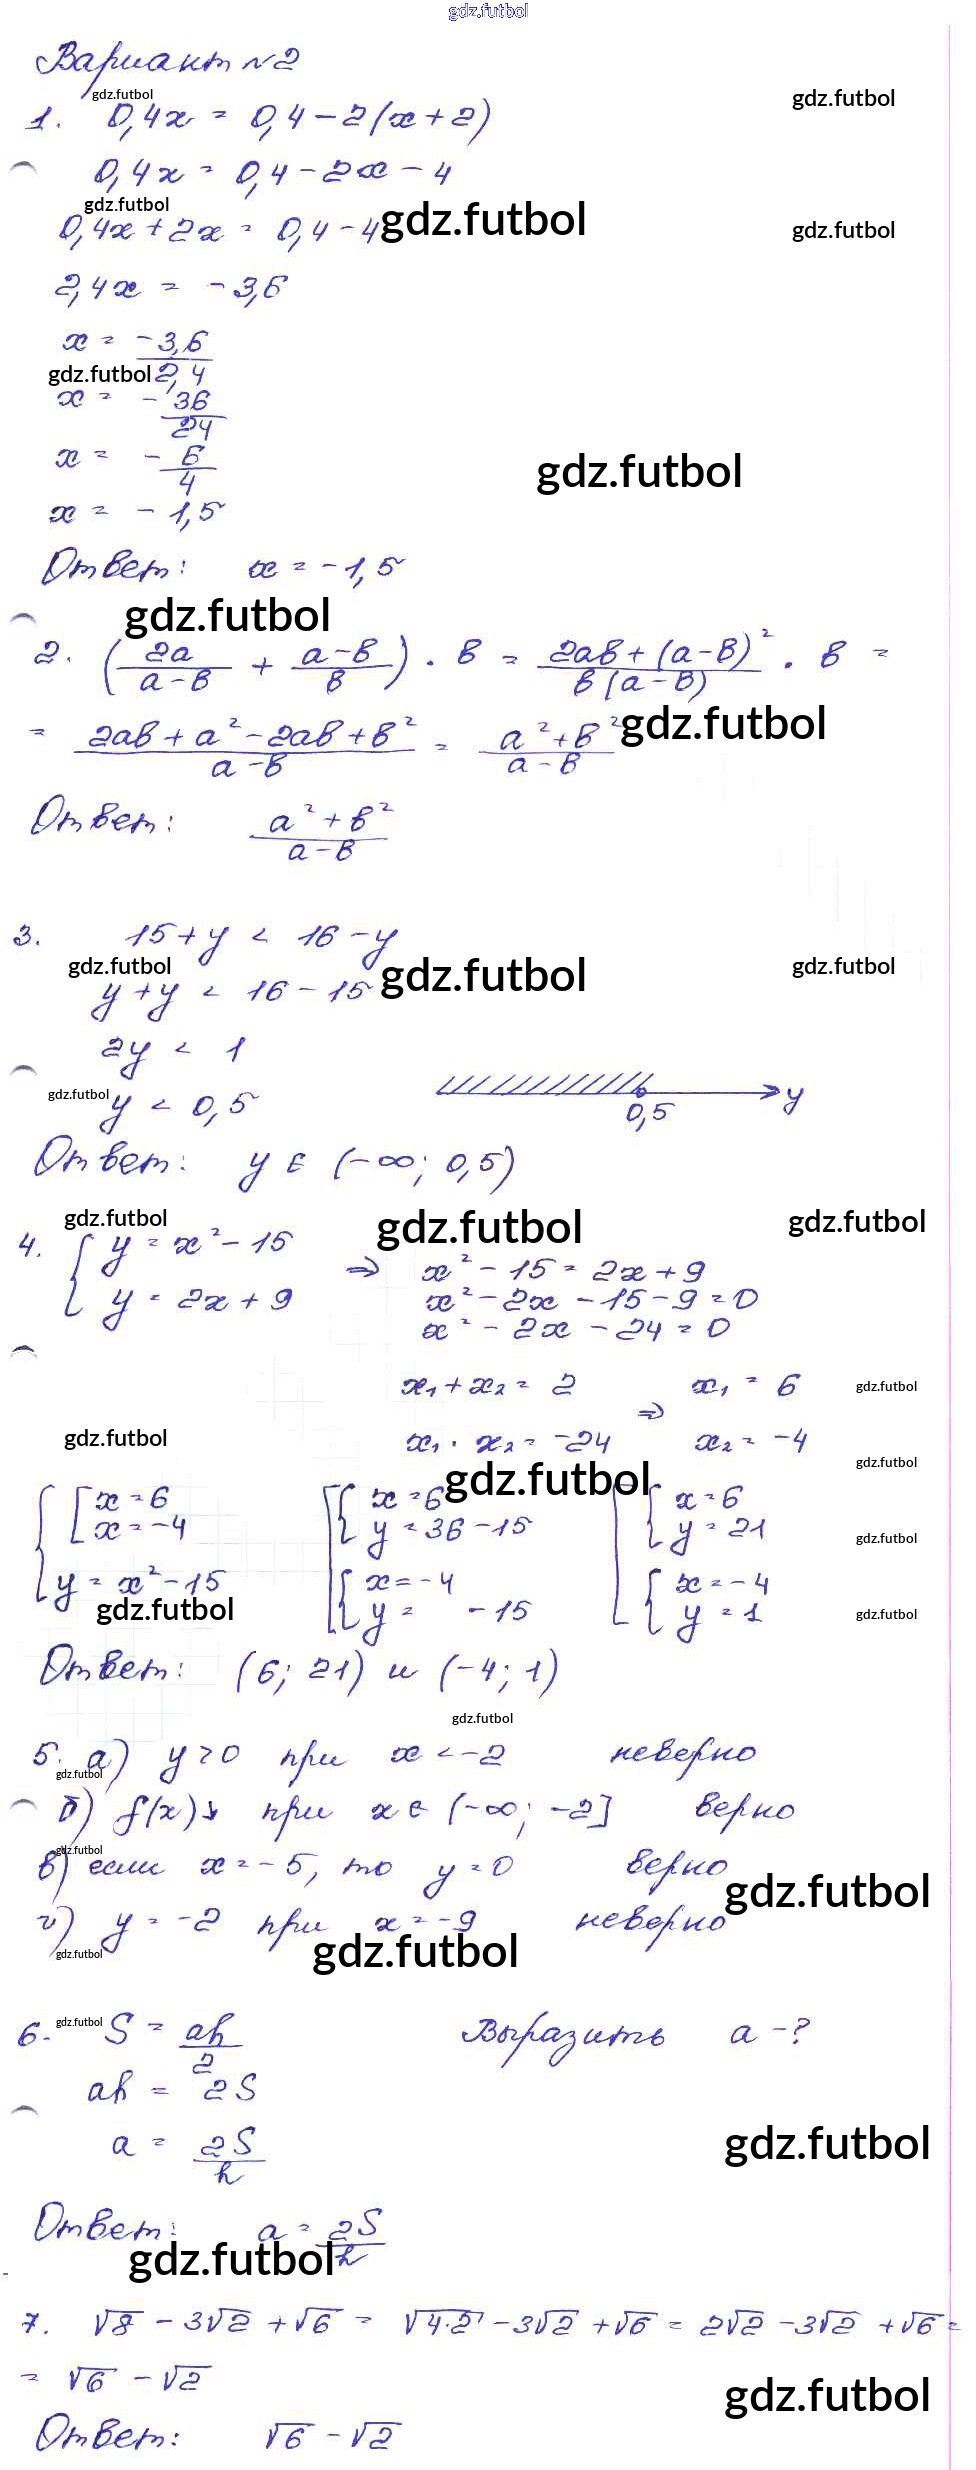 gdz.futbol
Вариант №2
gdz.futbol
1. 0,4x = 0,4 - 2(x + 2)
gdz.futbol
0,4x = 0,4 - 2x - 4
gdz.futbol
0,4x + 2x = 0,4 - 4
gdz.futbol
gdz.futbol
2,4x = -3,6
x = -3,6/2,4
gdz.futbol
x = - 36/24
x = - 6/4
gdz.futbol
x = - 1,5
Ответ: x = -1,5
gdz.futbol
2. (2a/(a-b) + (a-b)/b) · b = (2ab + (a-b)²)/(b(a-b)) · b =
gdz.futbol
= (2ab + a² - 2ab + b²)/(a-b) = (a² + b²)/(a-b)
Ответ: (a² + b²)/(a-b)
3. 15 + y < 16 - y
gdz.futbol
gdz.futbol
gdz.futbol
y + y < 16 - 15
2y < 1
gdz.futbol
y < 0,5
0,5 y
Ответ: y ∈ (-∞; 0,5)
gdz.futbol
gdz.futbol
gdz.futbol
4. { y = x² - 15
y = 2x + 9
⇒ x² - 15 = 2x + 9
x² - 2x - 15 - 9 = 0
x² - 2x - 24 = 0
x₁ + x₂ = 2
x₁ · x₂ = -24
⇒ x₁ = 6
x₂ = -4
gdz.futbol
gdz.futbol
gdz.futbol
gdz.futbol
{ [ x = 6
x = -4
y = x² - 15
[ { x = 6
y = 36 - 15
{ x = -4
y = - 15
[ { x = 6
y = 21
{ x = -4
y = 1
gdz.futbol
gdz.futbol
gdz.futbol
Ответ: (6; 21) и (-4; 1)
gdz.futbol
5. а) y > 0 при x < -2 неверно
gdz.futbol
б) f(x)↓ при x ∈ (-∞; -2] верно
gdz.futbol
в) если x = -5, то y = 0 верно
gdz.futbol
г) y = -2 при x = -9 неверно
gdz.futbol
gdz.futbol
gdz.futbol
6. S = ah/2 Выразить a - ?
ah = 2S
a = 2S/h
gdz.futbol
Ответ: a = 2S/h
gdz.futbol
7. √8 - 3√2 + √6 = √(4·2) - 3√2 + √6 = 2√2 - 3√2 + √6 =
= √6 - √2
gdz.futbol
Ответ: √6 - √2